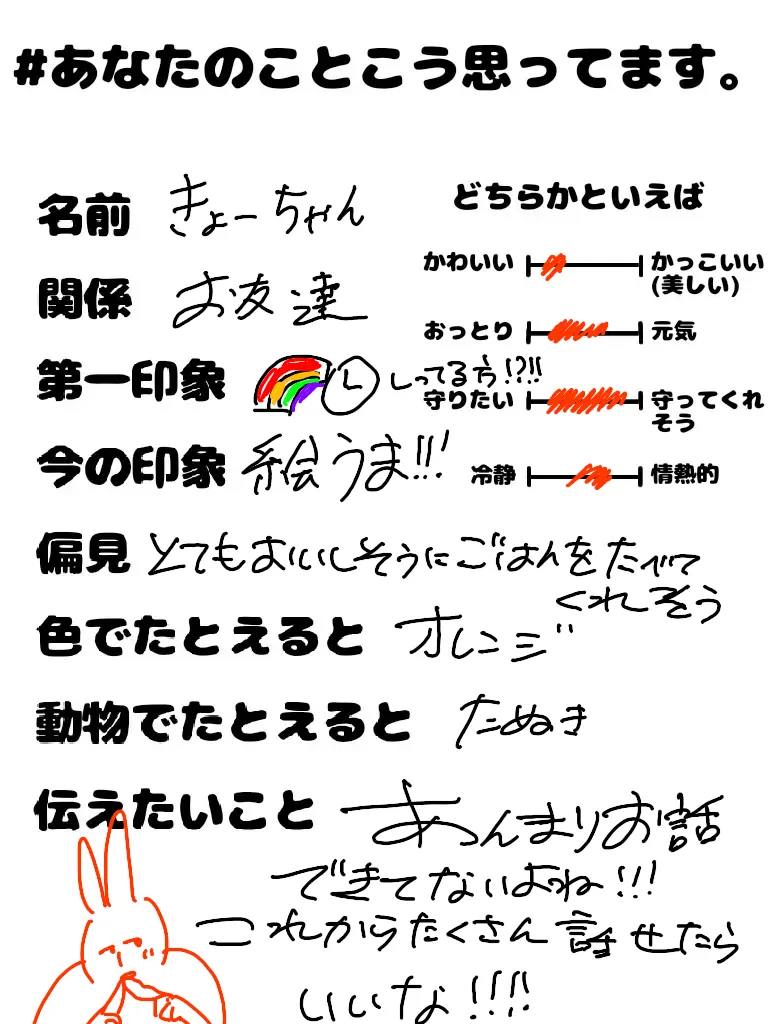 #あなたのことこう思ってます。
名前 きょーちゃん
関係 お友達
第一印象 し しってる方!?!!
今の印象 絵うま!!!
偏見 とてもおいしそうにごはんをたべて
くれそう
色でたとえると オレンジ
動物でたとえると たぬき
伝えたいこと あんまりお話
できてないよね!!!
これからたくさん話せたら
いいな!!!!
どちらかといえば
かわいい かっこいい
(美しい)
おっとり 元気
守りたい 守ってくれ
そう
冷静 情熱的